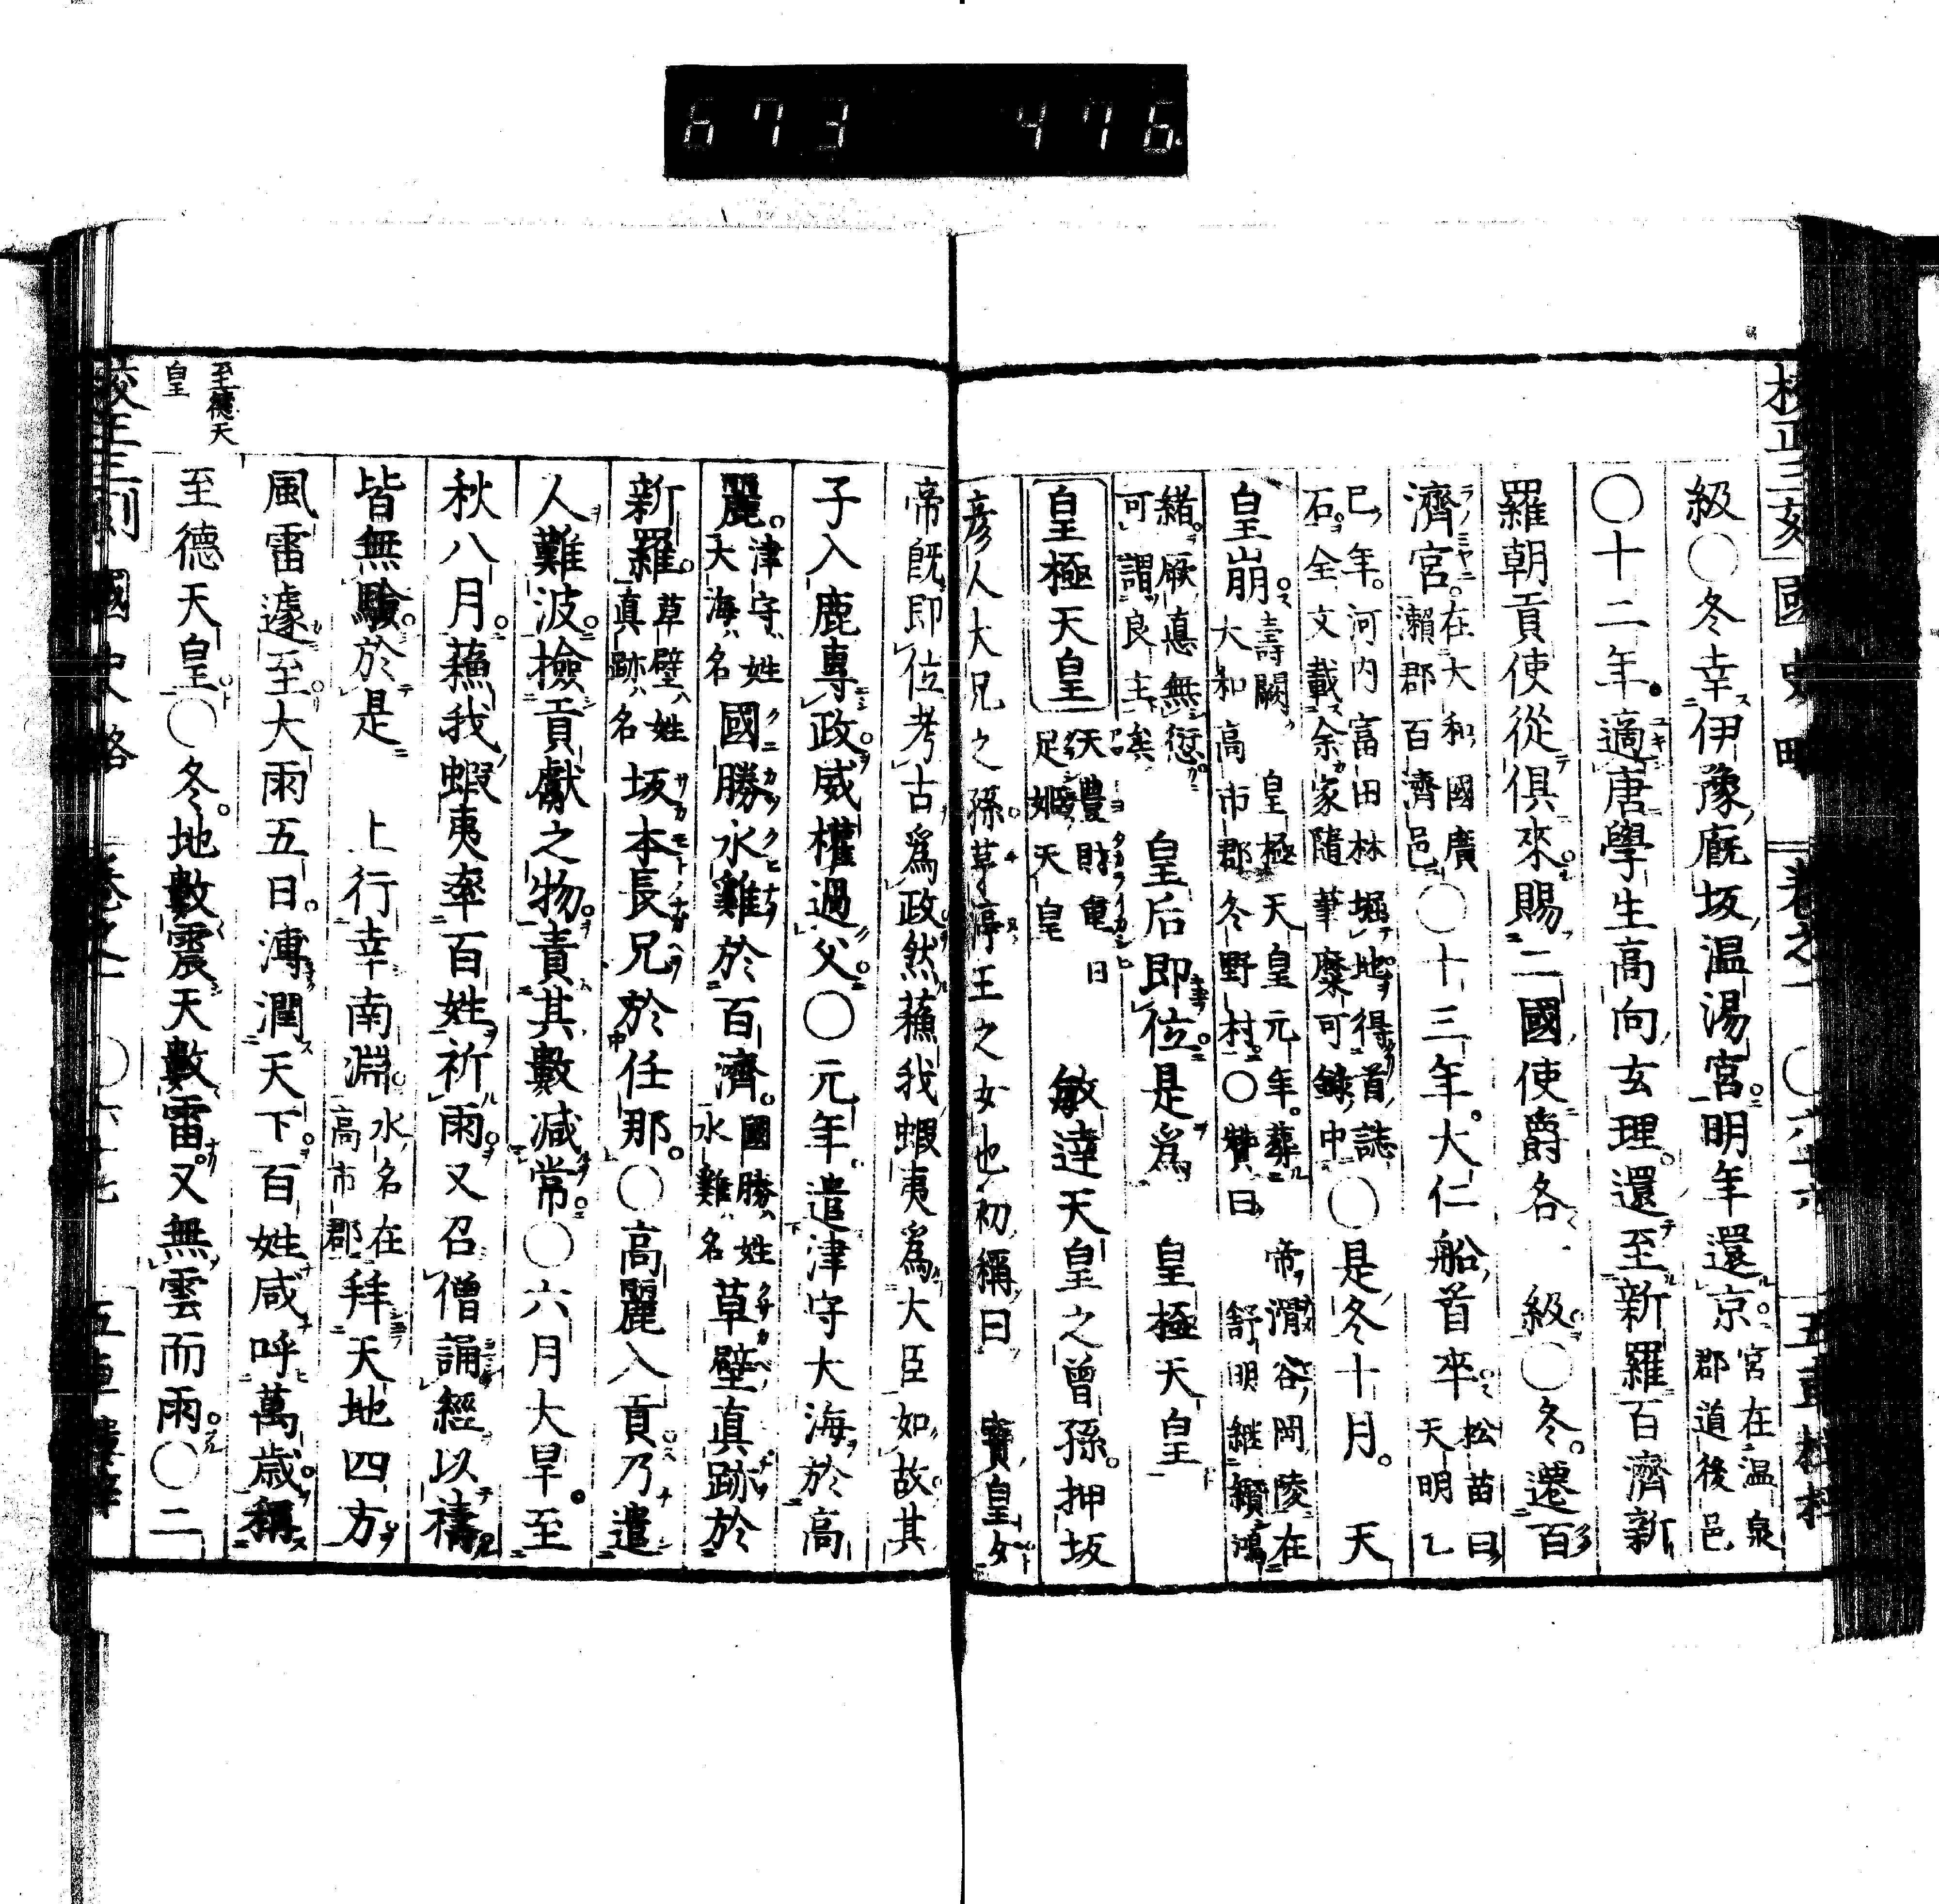 673 476.
級○冬幸伊豫廐坂温湯宮明年還京宮在温泉郡道後邑
○十二年適唐學生高向玄理還至新羅百濟新
羅朝貢使從俱來賜二國使爵各 級○冬遷百
濟宮在大和國廣瀨郡百濟邑○十三年大仁船首卒松苗曰天明乙
巳年河内富田林堀地得首誌石全文載余家隨筆糜可錄中○是冬十月 天
皇崩壽闕 皇極天皇元年葬大和高市郡冬野村○贊曰 帝渭谷岡陵在舒明繼纘鴻
緒厥悳無愆可謂良主矣 皇后即位是爲 皇極天皇
皇極天皇 天豐財重日足姬天皇 敏達天皇之曾孫押坂
彦人大兄之孫茅渟王之女也初稱曰 寶皇女
帝旣即位考古爲政然蘓我蝦夷爲大臣如故其
子入鹿專政威權過父○元年遣津守大海於高
麗津守姓大海名國勝水雞於百濟國勝姓水雞名草壁真跡於
新羅草壁姓真跡名坂本長兄於任那○高麗入貢乃遣
人難波撿貢獻之物責其數減常○六月大旱至
秋八月蘓我蝦夷率百姓祈雨又召僧誦經以禱
皆無驗於是 上行幸南淵水名在高市郡拜天地四方
風雷遽至大雨五日溥潤天下百姓咸呼萬歳稱
至德天皇○冬地數震天數雷又無雲而雨○二
至德天皇